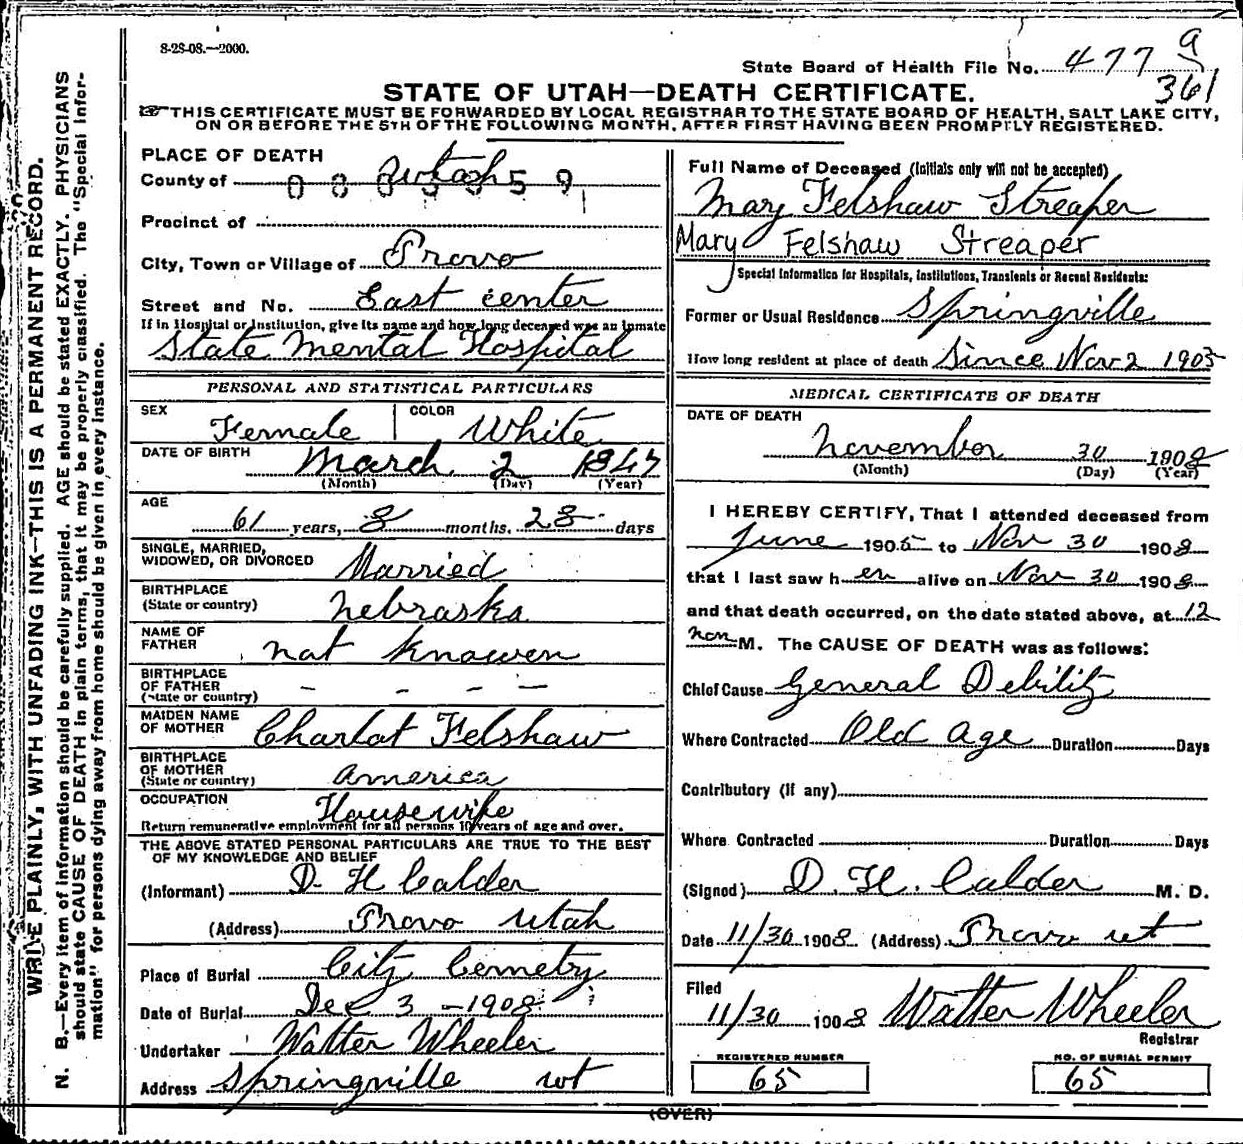 8-28-08.—2000.
State Board of Health File No. 477 a
361
STATE OF UTAH—DEATH CERTIFICATE.
☞THIS CERTIFICATE MUST BE FORWARDED BY LOCAL REGISTRAR TO THE STATE BOARD OF HEALTH, SALT LAKE CITY,
ON OR BEFORE THE 5TH OF THE FOLLOWING MONTH, AFTER FIRST HAVING BEEN PROMPTLY REGISTERED.
WRITE PLAINLY, WITH UNFADING INK—THIS IS A PERMANENT RECORD.
N. B.—Every item of information should be carefully supplied. AGE should be stated EXACTLY. PHYSICIANS
should state CAUSE OF DEATH in plain terms, that it may be properly classified. The "Special Infor-
mation" for persons dying away from home should be given in every instance.
PLACE OF DEATH
County of Utah
Precinct of
City, Town or Village of Provo
Street and No. East center
If in Hospital or Institution, give its name and how long deceased was an inmate
State Mental Hospital
PERSONAL AND STATISTICAL PARTICULARS
SEX Female COLOR White
DATE OF BIRTH March 2 1847
(Month) (Day) (Year)
AGE
61 years, 8 months. 28 days
SINGLE, MARRIED,
WIDOWED, OR DIVORCED Married
BIRTHPLACE
(State or country) Nebraska
NAME OF
FATHER not knowen
BIRTHPLACE
OF FATHER
(State or country) – – – —
MAIDEN NAME
OF MOTHER Charlot Felshaw
BIRTHPLACE
OF MOTHER
(State or country) America
OCCUPATION Housewife
Return remunerative employment for all persons 10 years of age and over.
THE ABOVE STATED PERSONAL PARTICULARS ARE TRUE TO THE BEST
OF MY KNOWLEDGE AND BELIEF
(Informant) D H Calder
(Address) Provo Utah
Place of Burial City Cemetry
Date of Burial Dec 3 - 1908
Undertaker Walter Wheeler
Address Springville ut
Full Name of Deceased (Initials only will not be accepted)
Mary Felshaw Streaper
Mary Felshaw Streaper
Special Information for Hospitals, Institutions, Transients or Recent Residents:
Former or Usual Residence Springville
How long resident at place of death Since Nov 2 1905
MEDICAL CERTIFICATE OF DEATH
DATE OF DEATH
November 30 1908
(Month) (Day) (Year)
I HEREBY CERTIFY, That I attended deceased from
June 1905 to Nov 30 1908
that I last saw her alive on Nov 30 1908
and that death occurred, on the date stated above, at 12
M. The CAUSE OF DEATH was as follows:
Chief Cause General Debility
Where Contracted Old Age Duration Days
Contributory (If any)
Where Contracted Duration Days
(Signed) D. H. Calder M. D.
Date 11/30 1908 (Address) Provo ut
Filed
11/30 1908 Walter Wheeler
Registrar
REGISTERED NUMBER
65
NO. OF BURIAL PERMIT
65
(OVER)